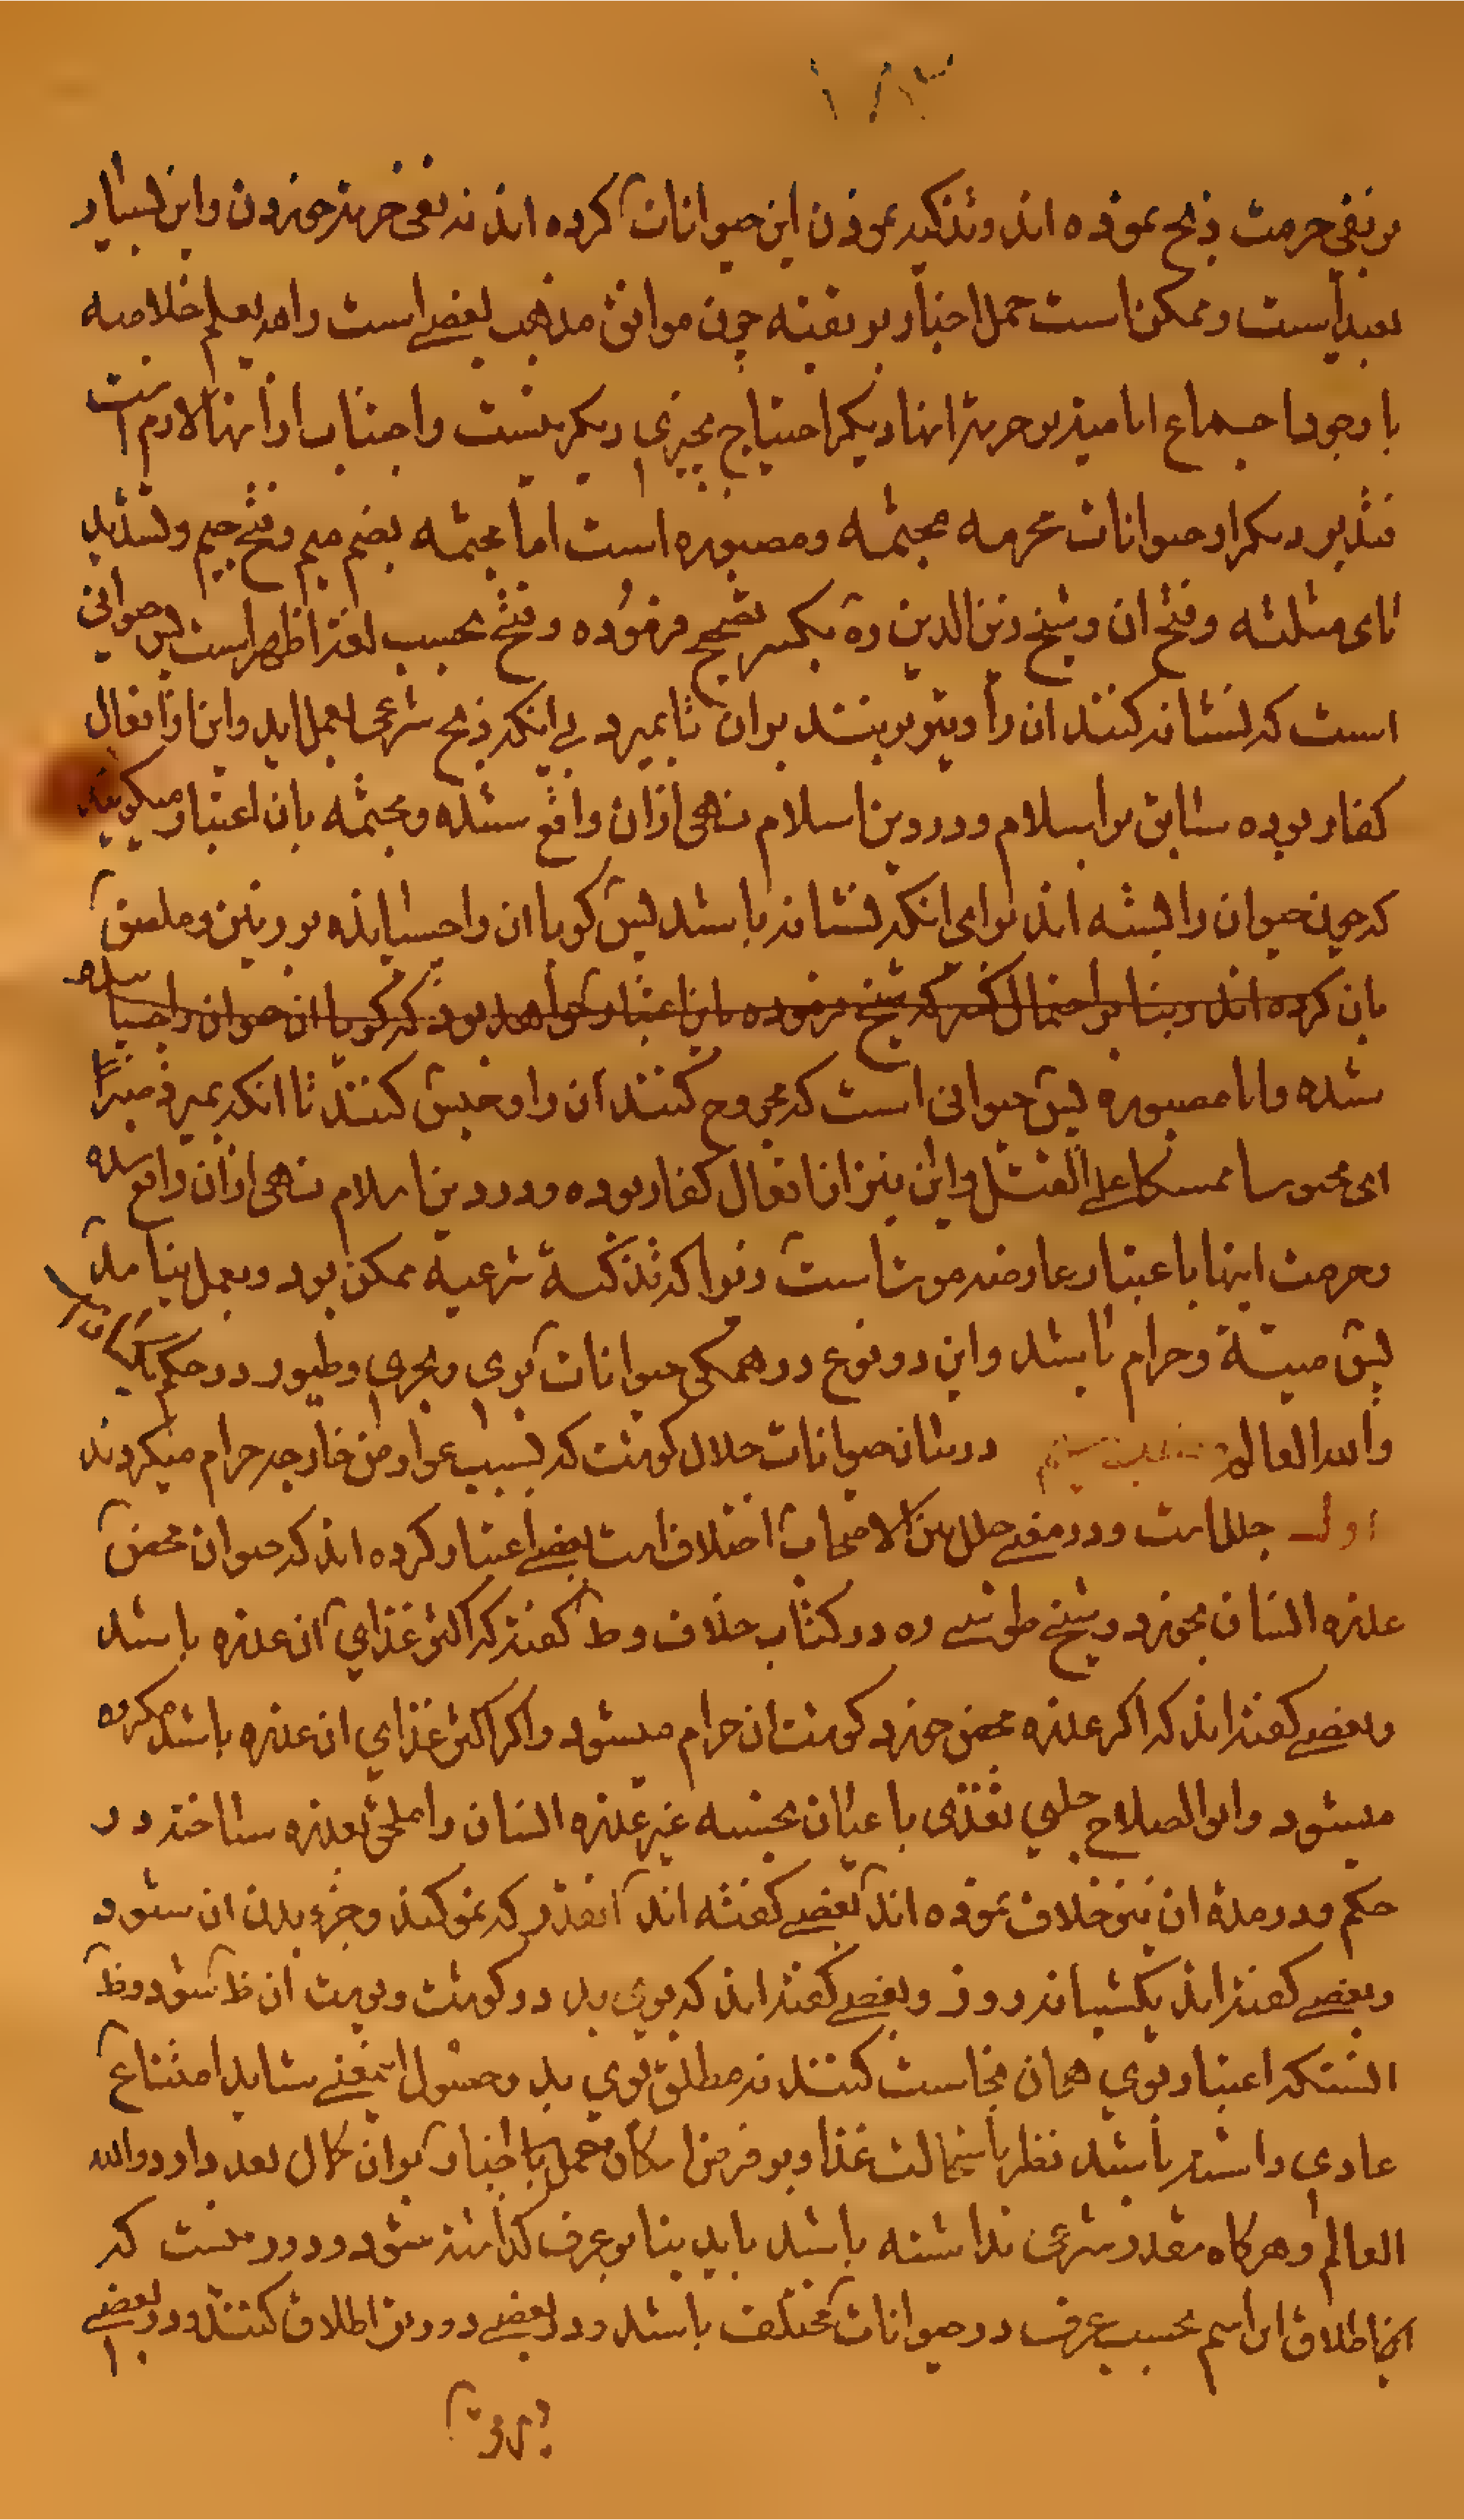 بر نفی حرمت ذبح نموده اند و تذکیه نمودن این حیوانات کرده اند نه نفی حرمة خوردن و این بسیار
بعید است و ممکن است حمل اخبار بر تقیه چون موافق مذهب بعضی است والله یعلم خلاصه
با وجود اجماع امامیه بر حرمة اینها دیگر احتیاج بچیزی دیگر نیست و اجتناب از اینها لازم است
دیگر از حیوانات محرمه مجثمه و مصبوره است اما مجثمه بضم میم و فتح جیم و تشدید
ثای مثلثه و فتح ان و شیخ زین الدین ره بکسر تصحیح فرموده و فتح بحسب لغة اظهر است پس حیوانی
است که نشانه کنند ان را و تیر برنند بران تا بمیرد بی انکه ذبح شرعی بعمل اید و این از افعال
کفار بوده سابق بر اسلام و در دین اسلام نهی ازان واقع شده و مجثمه بان اعتبار میکویند
که چون حیوان را بسته اند برای انکه نشانه باشد پس کویا ان را چسبانده بر زمین و ملصق
بان کرده اند و بنا بر احتمال کسر که شیخ فرموده باین اعتبار خواهد بود که کویا ان حیوان را چسبا
شده و اما مصبوره پس حیوانی است که مجروح کنند ان را و حبس کنند تا انکه بمیرد صبرًا
ای محبوسا ممسکا علی القتل و این نیز از افعال کفار بوده و در دین اسلام نهی ازان واقع شده
و حرمت اینها باعتبار عارضه موت است زیرا که تذکیه شرعیه ممکن بود و بعمل نیامد
پس میتة و حرام باشد و این دو نوع در همکی حیوانات بری و بحری و طیور در حکم
والله العالم در بیان حیوانات حلال کوشت که بسبب عوارض خارجه حرام میکردند
اول جلل است و در معنی جلل بین الاصحاب اختلاف است بعضی اعتبار کرده اند که حیوان محض
عذره انسان بخورد و شیخ طوسی ره در کتاب خلاف و ط کفته که اکثر غذای ان عذره باشد
و بعضی کفته اند که اکر عذره محض خورد کوشت ان حرام میشود و اکر اکثر غذای ان عذره باشد مکروه
میشود و ابو الصلاح حلبی تغذی باعیان نجسه غیر عذره انسان را ملحق بعذره ساخته در
حکم و در مدة ان نیز خلاف نموده اند بعضی کفته اند انقدر که نمو کند و جزء بدن ان شود
و بعضی کفته اند یکشبانه روز و بعضی کفته اند که بوی بد در کوشت و پوست ان ظ شود و ظ
انستکه اعتبار بوی همان نجاست کنند نه مطلق بوی بد و حصول اینمعنی شاید امتناع
عادی داشته باشد نظر باستحالت غذا و بر فرض امکان حمل اخبار بران کمال بعد دارد والله
العالم و هرکاه مقدر شرعی نداشته باشد باید بنا بر عرف کذاشته شود و دور نیست که
اطلاق این اسم بحسب عرف در حیوانات مختلف باشد و در بعضی دو روز اطلاق کنند و در بعضی